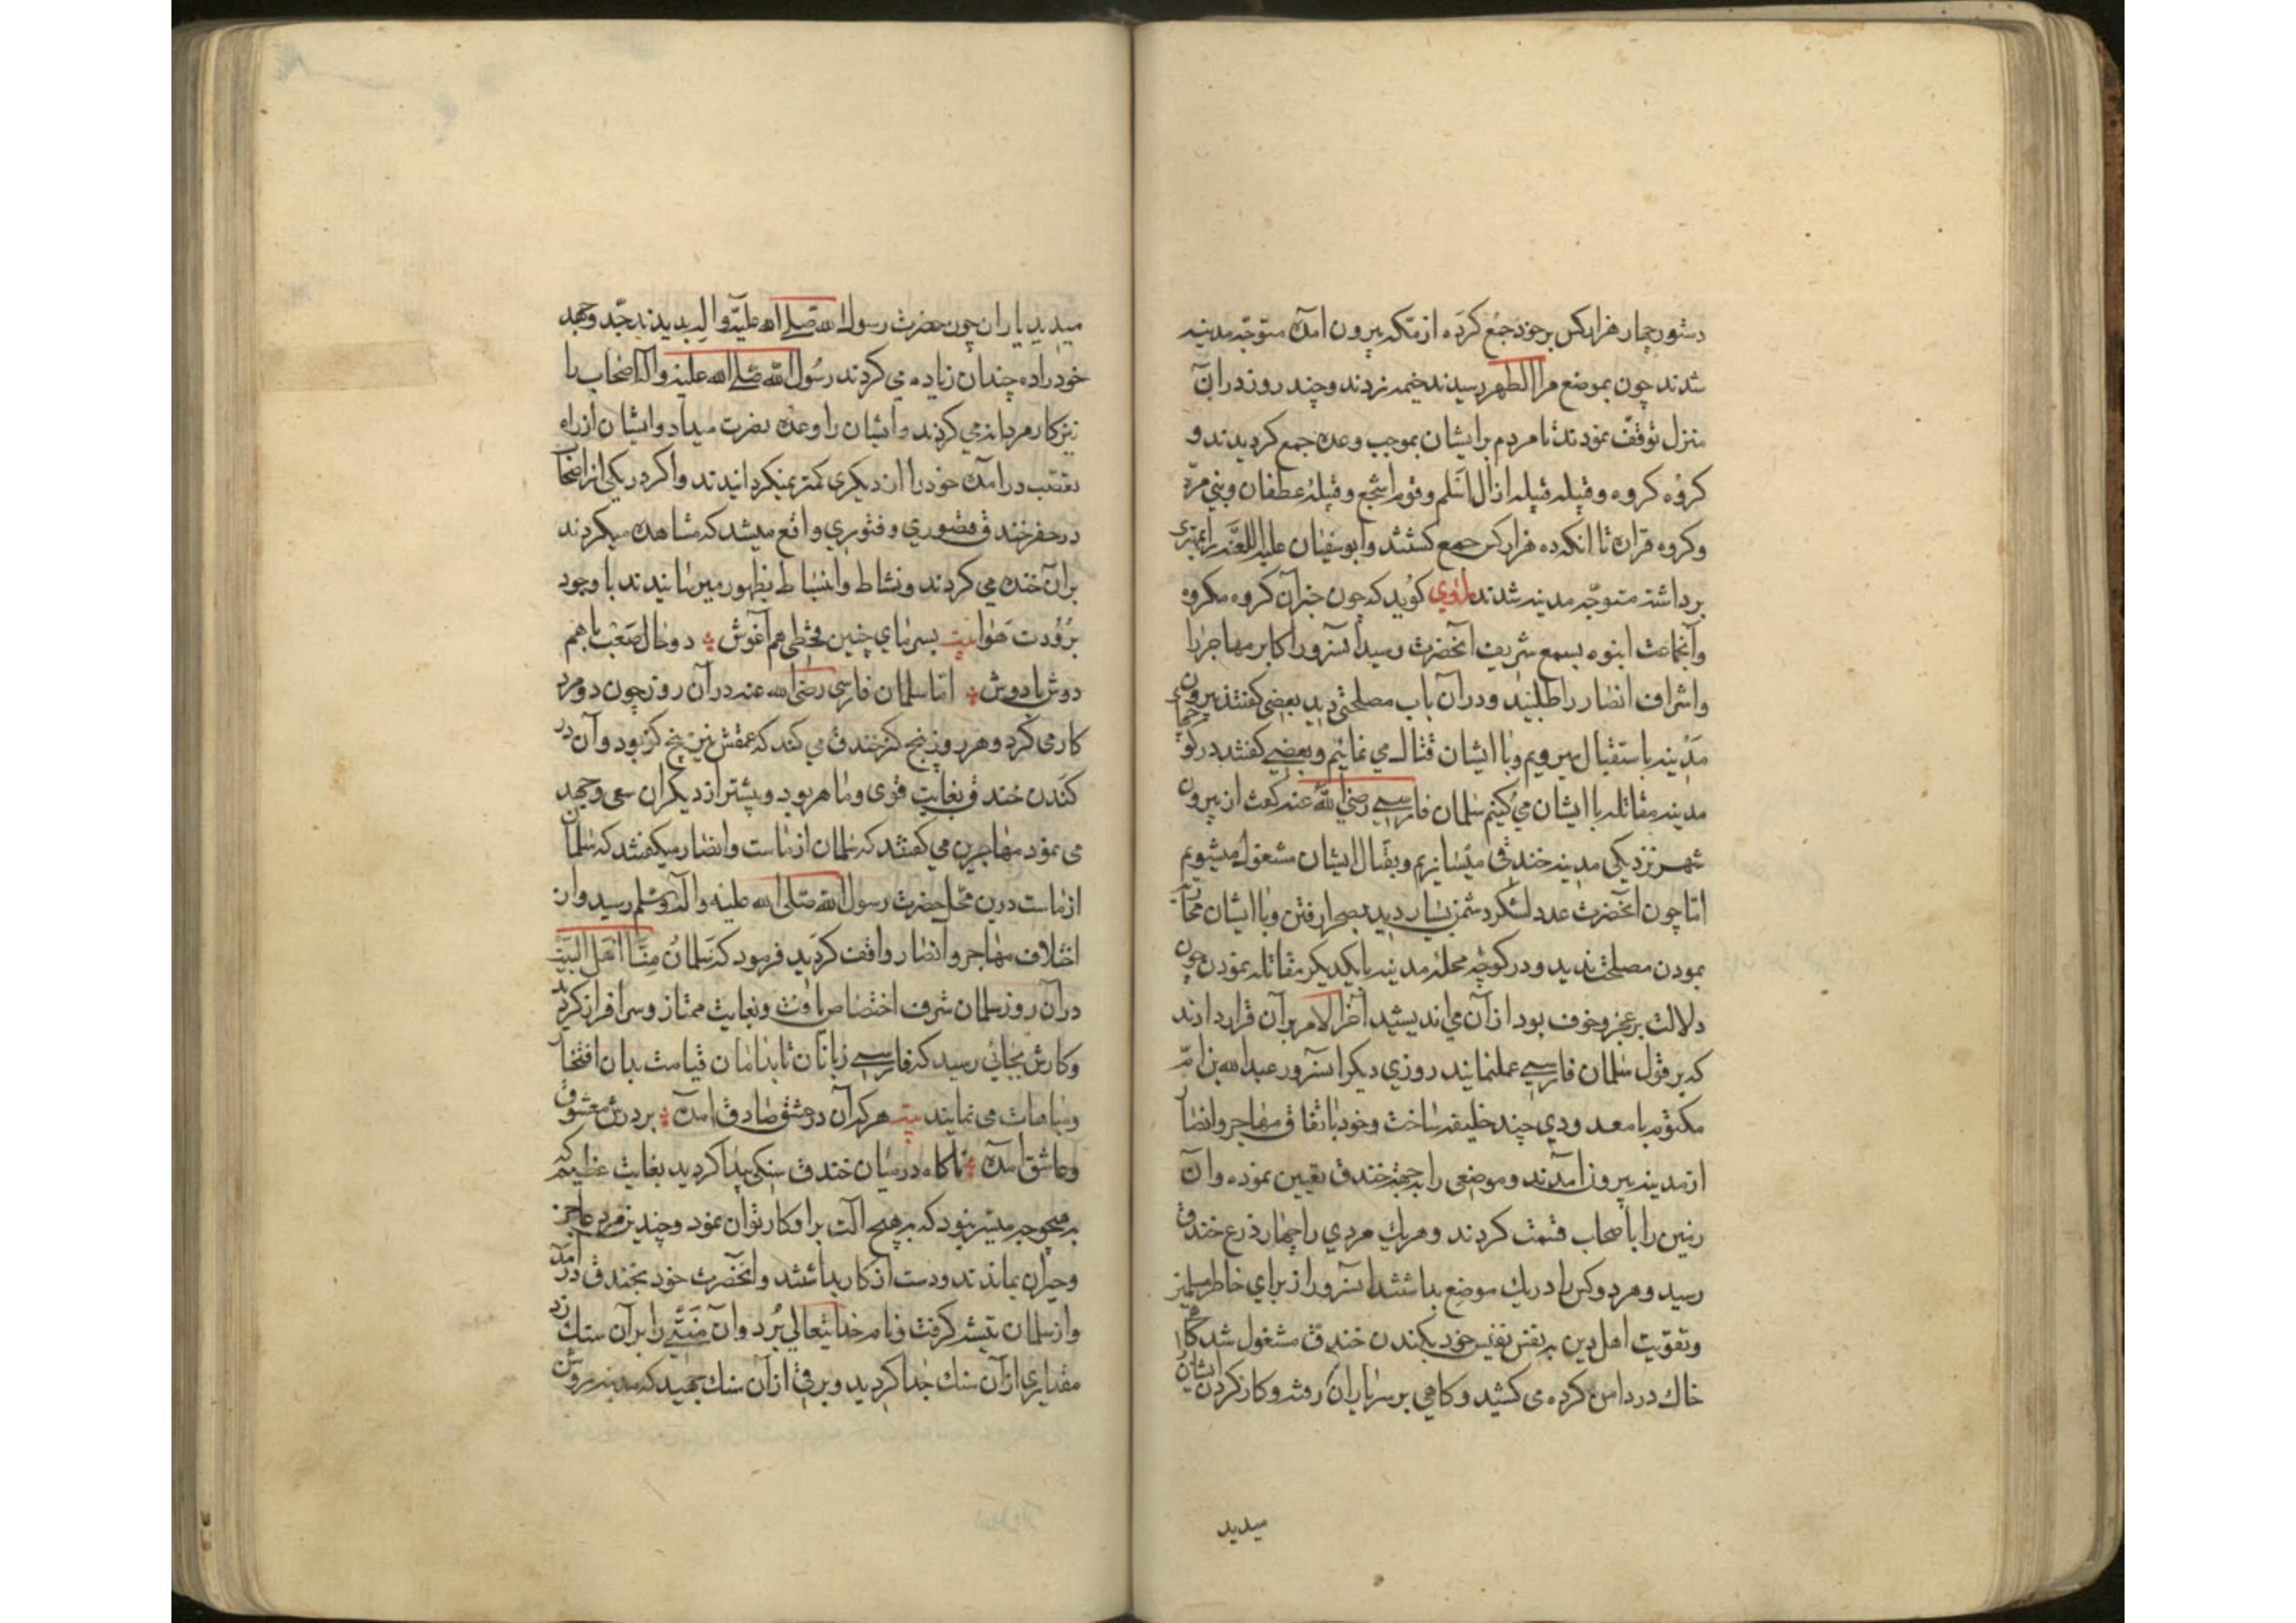 دستور چهار هزار کس بر خود جمع کرده از مکه بیرون آمده متوجه مدینه
شدند چون بموضع مرالظهر رسیدند خیمه زدند و چند روز در آن
منزل توقف نمودند تا مردم بر ایشان بموجب وعده جمع کردیدند و
کروه کروه و قبیله قبیله از ال اسلم و قوم اشجع و قبیلهٔ غطفان و بنی مره
و کروه قراره تا آنکه ده هزار کس جمع کشتند و ابوسفیان علیه اللعنه
برداشته متوجه مدینه شدند راوی کوید که چون خبر آن کروه مکروه
و آنجماعت انبوه بسمع شریف آنحضرت رسید آنسرور اکابر مهاجر را
و اشراف انصار را طلبید و در آن باب مصلحتی دید بعضی کفتند بیرون
مدینه باستقبال میرویم و با ایشان قتال می نمائیم و بعضی کفتند در کوچهای
مدینه مقاتله با ایشان می کنیم سلمان فارسی رضی الله عنه کفت از بیرون
شهر نزدیکی مدینه خندقی میسازیم و بقتال ایشان مشغول میشویم
اما چون آنحضرت عدد لشکر دشمن بسیار دید بصحرا رفتن و با ایشان محاربه
نمودن مصلحت ندید و در کوچه محلهٔ مدینه با یکدیکر مقاتله نمودن چون
دلالت بر عجز و خوف بود از آن می اندیشید آخر الامر بر آن قرار دادند
که بر قول سلمان فارسی عمل نمایند روزی دیکر آنسرور عبد الله بن ام
مکتوم با معدودی چند خلیفه ساخت و خود باتفاق مهاجر و انصار
از مدینه بیرون آمدند و موضعی را بجهة خندق تعیین نموده و آن
زمین را باصحاب قسمت کردند و هر یک مردی را چهار ذرع خندق
رسید و هر دو کس را در یک موضع بداشتند آنسرور از برای خاطر مسلمین
و تقویت اهل دین به نفس نفیس خود بکندن خندق مشغول شد کاه
خاک در دامن کرده می کشید و کاهی بر سر یاران رفته و کار کردن ایشان
میدید
میدید یاران چون حضرت رسول الله صلی الله علیه و اله بدیدند جد و جهد
خود را ده چندان زیاده می کردند رسول الله صلی الله علیه و اله اصحاب را
نیز کار مردانه می کردند و ایشان را وعده نصرت میداد و ایشان از راه
تعصب در آمده خود را از دیکری کمتر نمیکردانیدند و اکر در یکی از اصحاب
در حفر خندق قصوری و فتوری واقع میشد که مشاهده میکردند
بر آن خنده می کردند و نشاط و انبساط بظهور میرسانیدند با وجود
برودت هوا بیت بسرمای چنین قحطی هم آغوش دو حال صعب با هم
دوش با دوش اما سلمان فارسی رضی الله عنه در آن روز چون دو مرد
کار می کرد و هر روز پنج کز خندق می کند که عمقش نیز پنج کز بود و آن در
کندن خندق بغایت قوی و ماهر بود و پیشتر از دیکران سعی و جهد
می نمود مهاجرین می کفتند که سلمان از ماست و انصار میکفتند که سلمان
از ماست درین محل حضرت رسول الله صلی الله علیه و آله و سلم رسید و از
اختلاف مهاجر و انصار واقف کردید فرمود که سلمان منا اهل البیت
در آن روز سلمان شرف اختصاص یافت و بغایت ممتاز و سرافراز کردید
و کارش بجائی رسید که فارسی زبانان تا بدامان قیامت بدان افتخار
و مباهات می نمایند بیت هر که آن در عشق صادق آمده بر درش معشوق
و عاشق آمده ناکاه در میان خندق سنکی پیدا کردید بغایت عظیم که
به هیچوجه میسر نبود که به هیچ آلت بر او کار توان نمود و چندین مرد عاجز
و حیران بماندند و دست از کار بداشتند و آنحضرت خود بخندق در آمد
و از سلمان تیشه کرفت و نام خدایتعالی برد و آن تیشه را بر آن سنک زد
مقداری از آن سنک جدا کردید و برقی از آن سنک بجهید که مدینه روشن